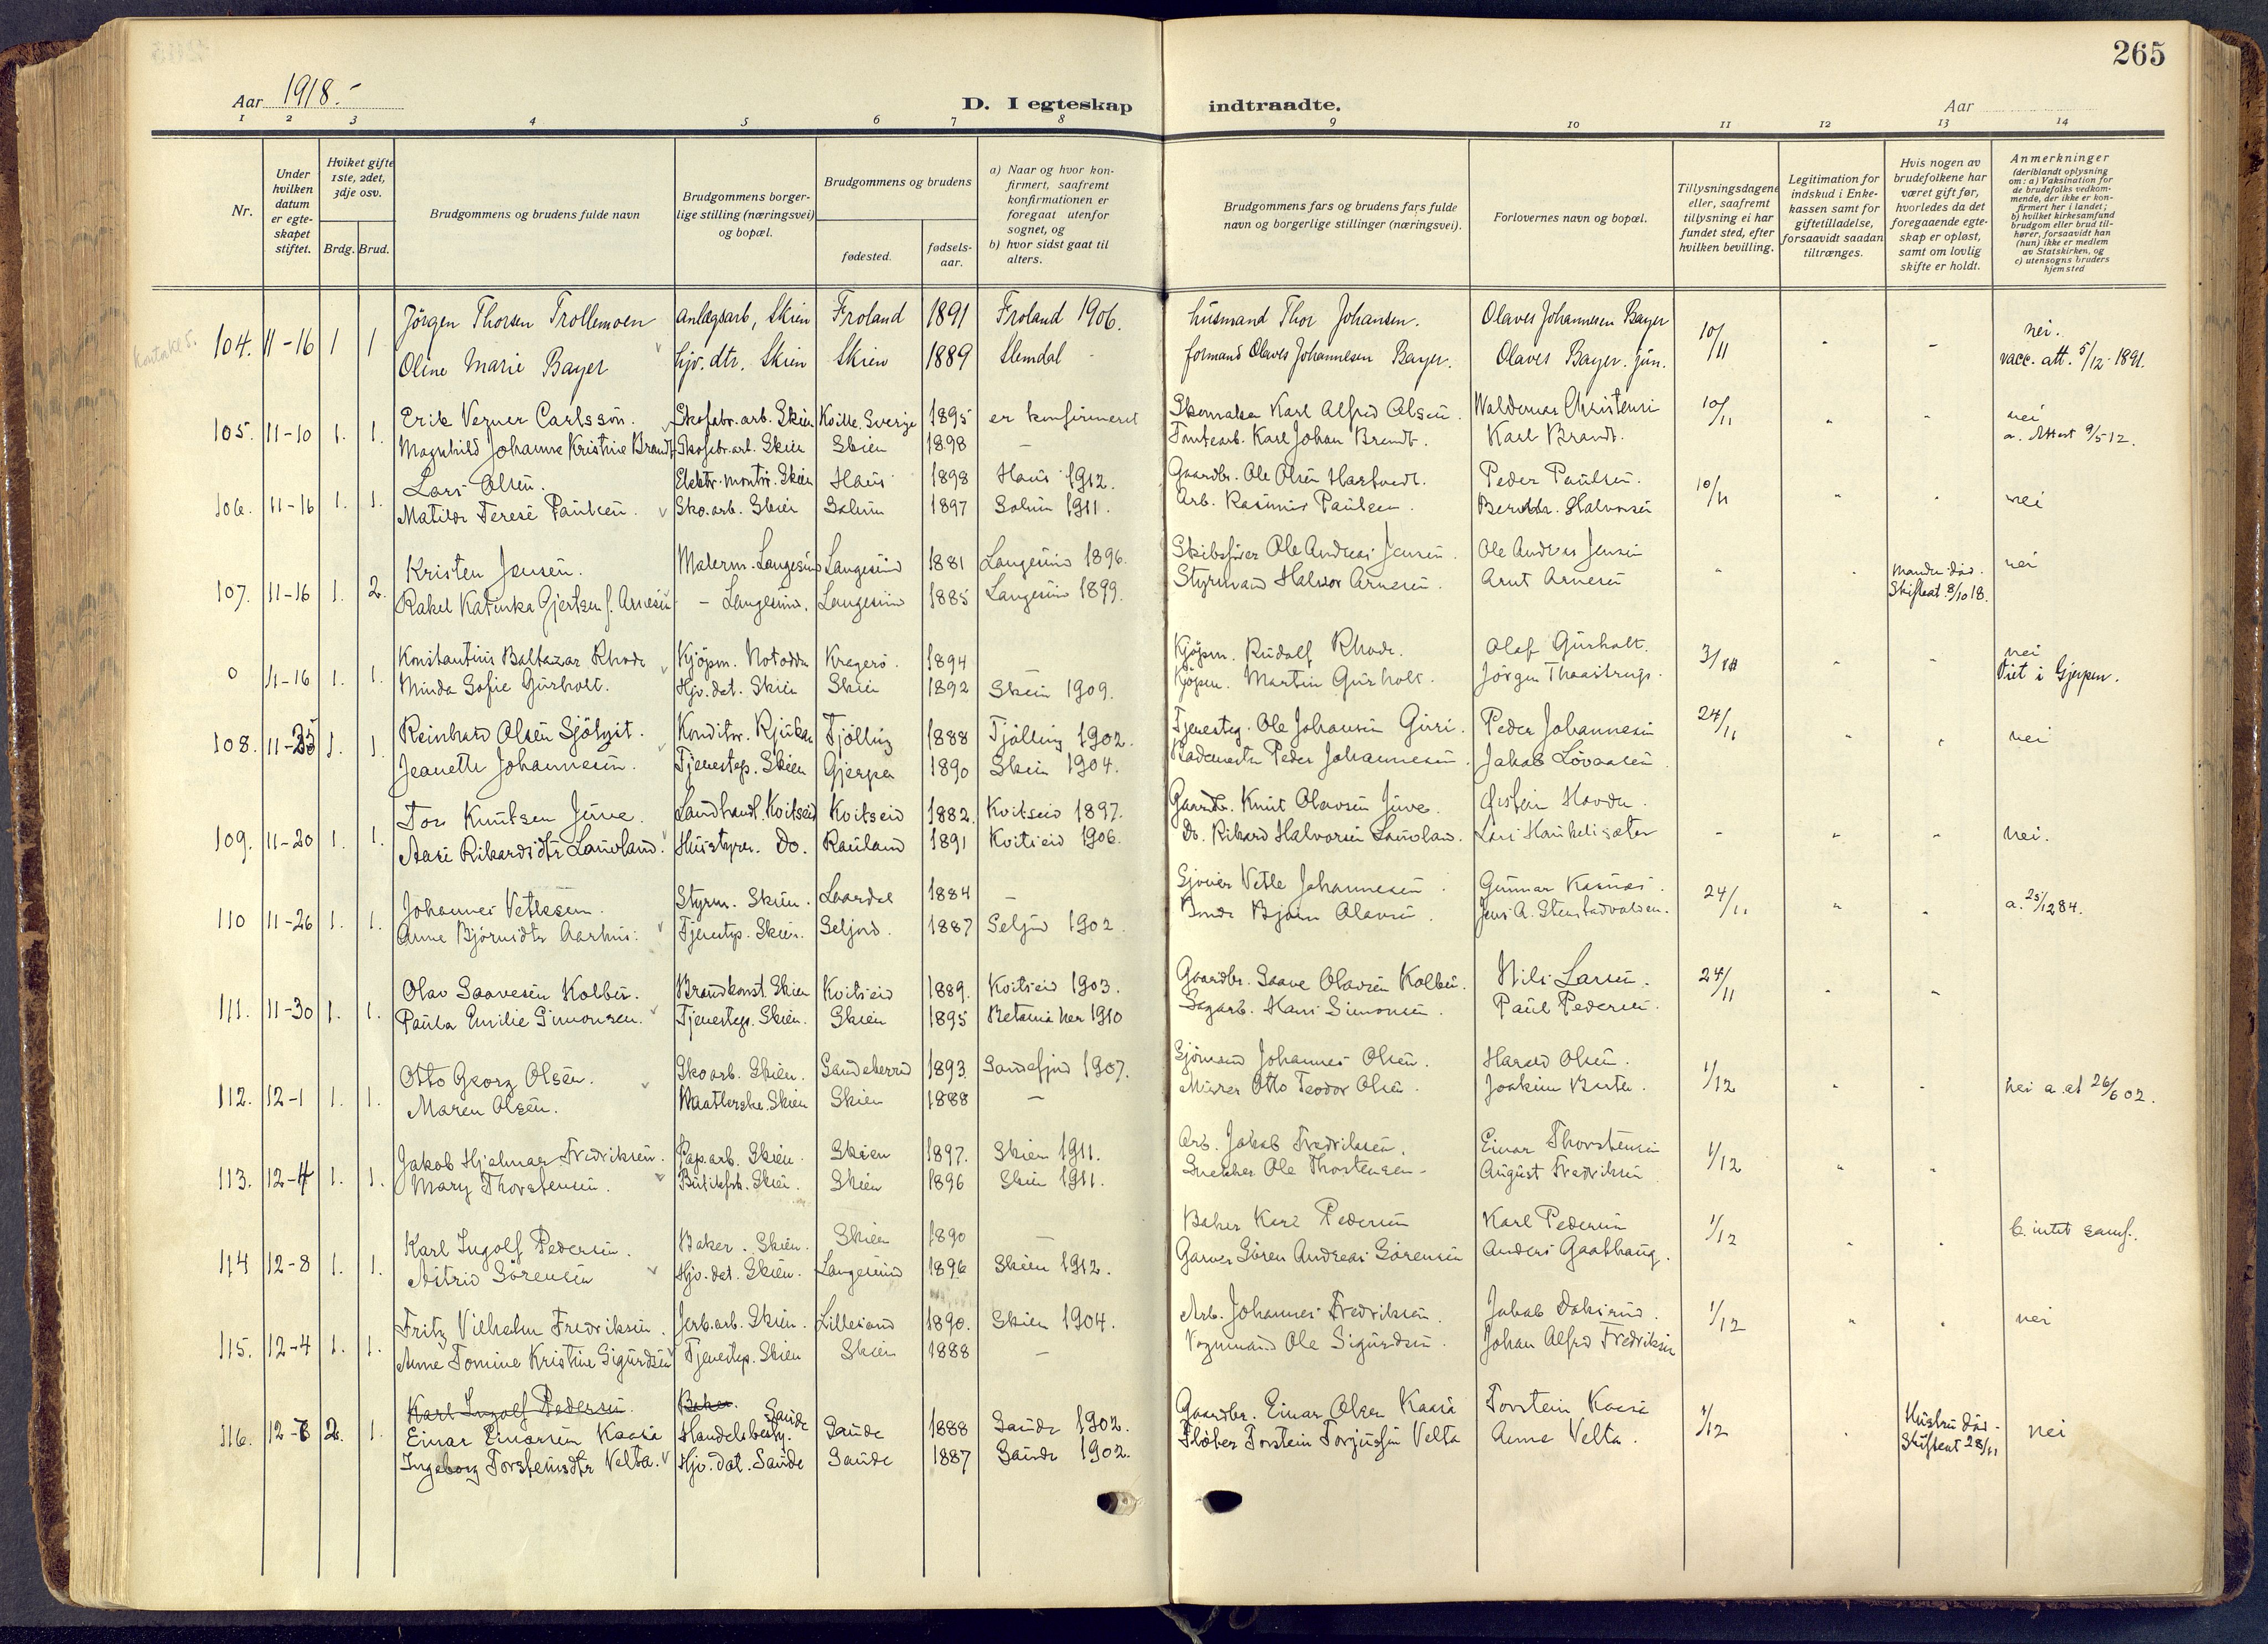 265
Aar 1918.-
D. I egteskap indtraadte.
Aar
1 2 3 4 5 6 7 8 9 10 11 12 13 14
Nr.
Under hvilken datum er egte-skapet stiftet.
Hviket gifte 1ste, 2det, 3dje osv.
Brdg. Brud.
Brudgommens og brudens fulde navn
Brudgommens borger-lige stilling (næringsvei) og bopæl.
Brudgommens og brudens
fødested.
fødsels-aar.
a) Naar og hvor kon-firmert, saafremt konfirmationen er foregaat utenfor sognet, og
b) hvor sidst gaat til alters.
Brudgommens fars og brudens fars fulde navn og borgerlige stillinger (næringsvei).
Forlovernes navn og bopæl.
Tillysningsdagene eller, saafremt tillysning ei har fundet sted, efter hvilken bevilling.
Legitimation for indskud i Enke-kassen samt for giftetilladelse, forsaavidt saadan tiltrænges.
Hvis nogen av brudefolkene har været gift før, hvorledes da det foregaaende egte-skap er opløst, samt om lovlig skifte er holdt.
Anmerkninger (deriblandt oplysning om: a) Vaksination for de brudefolks vedkom-mende, der ikke er kon-firmert her i landet; b) hvilket kirkesamfund brudgom eller brud til-hører, forsaavidt han (hun) ikke er medlem av Statskirken, og c) utensogns bruders hjemsted
104. 11-16 1 1 Jörgen Thorsen Trollemoen anlægsarb, Skien Froland 1891 Froland 1906. husmand Thor Johansen. Olaves Johannesen Bayer 10/11 nei.
Oline Marie Bayer hjv. dtr. Skien Skien 1889 Slemdal - formand Olaves Johannesen Bayer. Olaves Bayer. jun. vacc. att. 5/12-1891.
105. 11-10 1. 1. Erik Verner Carlsson. Skofabr. arb. Skien Kville. Sverige 1895 er konfirmeret Skomaker Karl Alfred Olsen. Waldemar Christensen 10/11 nei
Magnhild Johanne Kristine Brandt Skofabr. arb. Skien Skien 1898 - Karl Johan Brandt. Karl Brandt. a. Attest 9/5 12.
106. 11-16 1. 1. Lars Olsen. Elektr. montör. Skien Haus 1898 Haus 1912. Gaardbr. Ole Olsen Hartvedt. Peder Paulsen. 10/11
Matilde Terese Paulsen. Sko.arb. Skien Solum 1897 Solum 1911. Arb. Rasmus Paulsen. Halvorsen nei
107. 11-16 1. 2. Kristen Jensen. Malerm. Langesund Langesund 1881 Langesund 1896. Skibsfører Ole Andreas Jensen. Ole Andreas Jensen nei
Rakel Katinka Gjertsen f. Arnesen - Langesund. Langesund 1885 Langesund 1899. Styrmand Halvor Arnesen. Arnt Arnesen Manden död. Skifteat. 8/10 18.
0 11-16 1. 1. Konstantius Baltazar Rhode Kjöpm. Notodden Kragerö. 1894 - Kjöpm. Rudolf Rhode. Olaf Gurholt. 3/11 nei
Minda Sofie Gurholt. Hjv. dat. Skien Skien 1892 Skien 1909. Kjöpm. Martin Gurholt. Jörgen Thaastrup. Viet i Gjerpen.
108. 11-25 1. 1. Reinhard Olsen Sjölyst. Konditor. Rjukan Tjölling 1888 Tjölling 1902. Tjenesteg. Ole Johansen Guri. Peder Johannesen 24/11
Jeanette Johannesen. Tjenestep. Skien Gjerpen 1890 Skien 1904. Bademester Peder Johannesen. Jakob Lövaasen nei
109. 11-20 1. 1. Tor Knutsen Juve. Landhandl. Kvitseid Kvitseid 1882. Kvitseid 1897. Gaardbr. Knut Olavsen Juve. Østein Hovden.
Aase Rikardsdtr Landland. Husstyrer. Do. Rauland 1891 Kvitseid 1906. Do. Rikard Halvorsen Landland. Lars Haukelisæter - nei.
110 11-26 1. 1. Johannes Vetlesen. Styrm. Skien. Laardal 1884 - Vetle Johannesen. Gunnar Kasnes. 24/11 a. 25/12 84.
Anne Bjørnsdtr Aarhus. Tjenestep. Skien. Seljord. 1887 Seljord 1902. Bonde Bjørn Olavsen. Jens A. Stenstadvolden.
111. 11-30 1. 1. Olav Saavesen Kolben. Brandkonst. Skien Kvitseid 1889. Kvitseid 1903. Gaardbr. Saave Olavsen Kolben. Nils Larsen. 24/11
Paula Emilie Simonsen. Tjenestep. Skien. Skien 1895 Betania her 1910 Sagarb. Hans Simonsen. Paul Pedersen.
112. 12-1 1. 1. Otto Georg Olsen. Skoarb. Skien. Sandeherred 1893. Sandefjord 1907. Sjömand Johannes Olsen. Harald Olsen. 1/12
Maren Olsen. Skien Skien 1888 - Murer Otto Teodor Olsen. Joakim nei a. at 26/6 02.
113. 12-4 1. 1. Jakob Hjalmar Fredriksen. Pap.arb. Skien. Skien 1897. Skien 1911. Arb. Jakob Fredriksen. Einar Thorstensen 1/12
Mary Thorstensen. Butikfrk. Skien. Skien 1896 Skien 1911. Snekker Ole Thorstensen. August Fredriksen
114 12-8 1. 1. Karl Ingolf Pedersen. Baker. Skien. Skien 1890 - Baker Karl Pedersen Karl Pedersen 1/12 b. intet samf.
Astrid Sörensen Hjv. dat. Skien. Langesund 1896 Skien 1912. Garver Sören Andreas Sörensen Anders Gaathaug.
115. 12-4 1. 1. Fritz Vilhelm Fredriksen. Jerb.arb. Skien. Lillesand 1890. Skien 1904. Arb. Johannes Fredriksen. Jakob Doksrud. 1/12 nei
Anne Tomine Kristine Sigurdsen Tjenestep. Skien Skien 1888 - Vognmand Ole Sigurdsen. Johan Alfred Fredriksen
Karl Ingolf Pedersen. Baker.
116. 12-8 2. 1. Einar Einarsen Kaasa Handelsbesty. Saude Saude 1888 Saude 1902. Gaardbr. Einar Olsen Kaasa Torstein Kaasa 1/12 Hustru död - Skifteat 28/11 nei
Ingeborg Torsteinsdtr Velta. Hjv. dat. Saude Saude 1887 Saude 1902. Torstein Torjussen Velta Anne Velta.